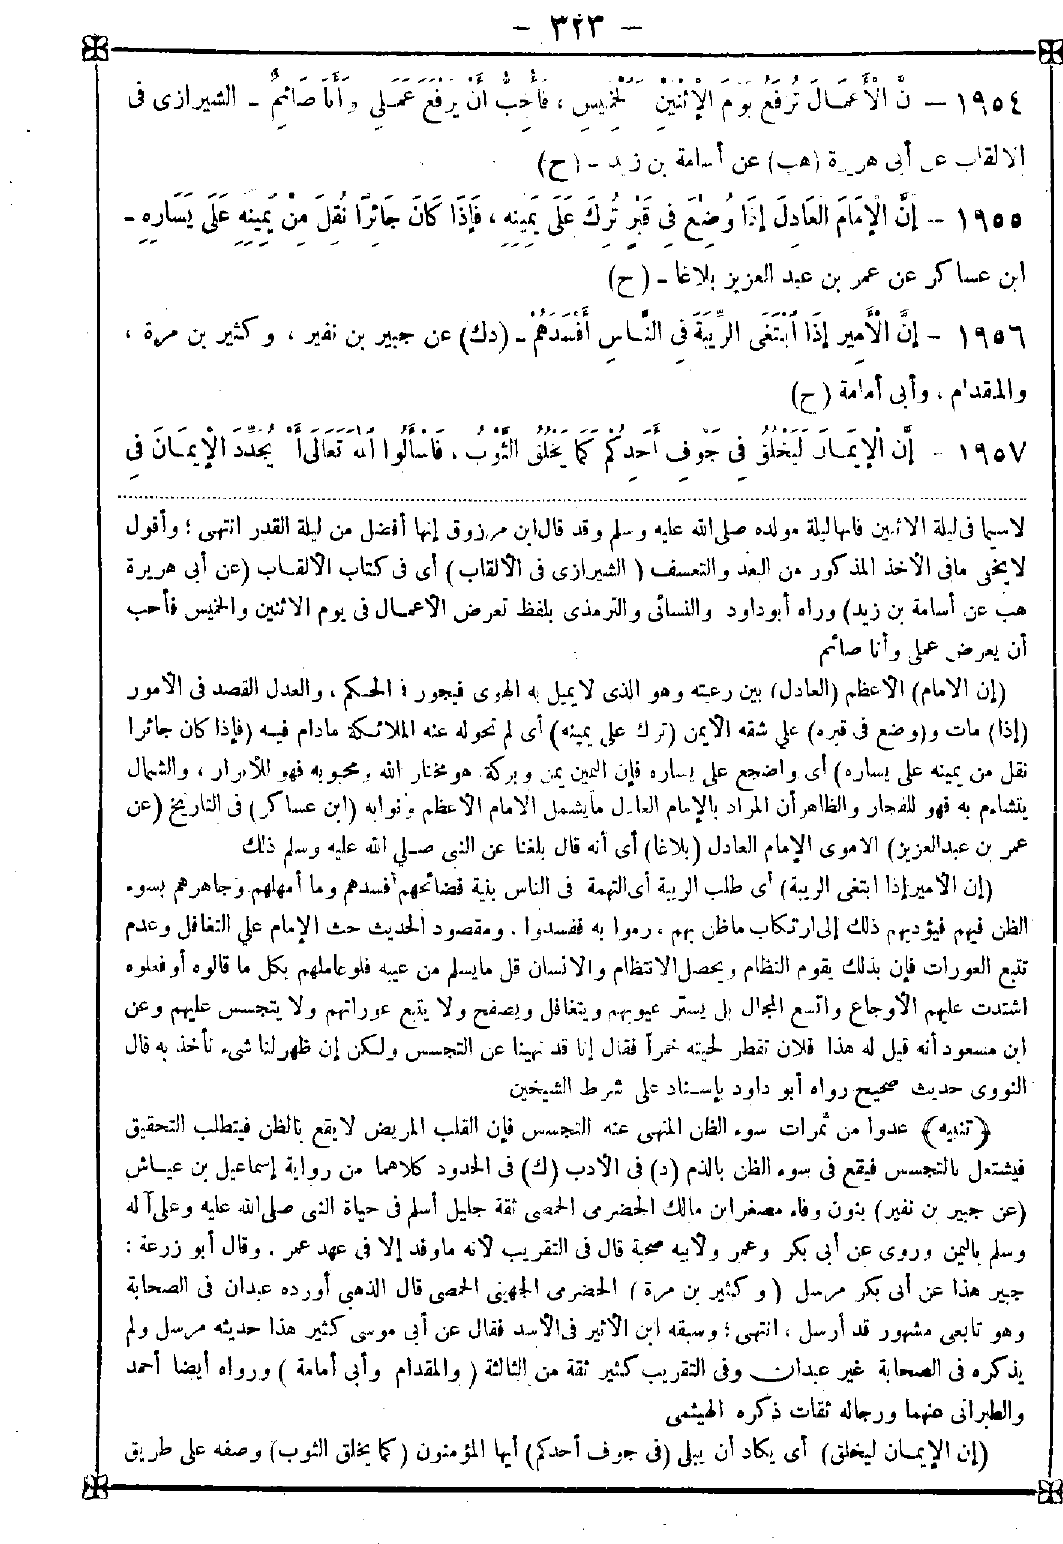 - ٣٢٣ -
١٩٥٤ - نَّ الْأَعْمَالَ تُرْفَعُ يَوْمَ الْإِثْنَيْنِ لْخَمِيسِ ، فَأُحِبُّ أَنْ يُرْفَعَ عَمَلِي وَأَنَا صَائِمٌ - الشيرازى فى
الالقاب عن أبى هريرة (هب) عن أسامة بن زيد - (ح)
١٩٥٥ - إِنَّ الْإِمَامَ الْعَادِلَ إِذَا وُضِعَ فِي قَبْرِهِ تُرِكَ عَلَى يَمِينِهِ ، فَإِذَا كَانَ جَائِرًا نُقِلَ مِنْ يَمِينِهِ عَلَى يَسَارِهِ -
ابن عساكر عن عمر بن عبد العزيز بلاغا - (ح)
١٩٥٦ - إِنَّ الْأَمِيرَ إِذَا ابْتَغَى الرِّيبَةَ فِي النَّاسِ أَفْسَدَهُمْ - (دك) عن جبير بن نفير ، وكثير بن مرة ،
والمقدام ، وأبى أمامة (ح)
١٩٥٧ - إِنَّ الْإِيمَانَ لَيَخْلَقُ فِي جَوْفِ أَحَدِكُمْ كَمَا يَخْلَقُ الثَّوْبُ ، فَاسْأَلُوا اللهَ تَعَالَى أَنْ يُجَدِّدَ الْإِيمَانَ فِي
لاسيما فى ليلة الاثنين فانها ليلة مولده صلى الله عليه وسلم وقد قال ابن مرزوق إنها أفضل من ليلة القدر انتهى ؛ وأقول
لا يخفى مافى الأخذ المذكور من البعد والتعسف (الشيرازى فى الألقاب) أى فى كتاب الألقـاب (عن أبى هريرة
هب عن أسامة بن زيد) ورواه أبوداود والنسائى والترمذى بلفظ تعرض الأعمـال فى يوم الاثنين والخميس فأحب
أن يعرض عملى وأنا صائم
(إن الامام) الأعظم (العادل) بين رعيته وهو الذى لا يميل به الهوى فيجور فى الحـكم ، والعدل القصد فى الأمور
(إذا) مات و(وضع فى قبره) على شقه الأيمن (ترك على يمينه) أى لم تحوله عنه الملائـكة مادام فيـه (فإذا كان جائرا
نقل من يمينه على يساره) أى واضجع على يساره فإن اليمين يمن وبركة هو مختار الله ومحبوبه فهو للأبرار ، والشمال
يتشاءم به فهو للفجار والظاهر أن المراد بالإمام العادل ما يشمل الامام الأعظم ونوابه (ابن عساكر) فى التاريخ (عن
عمر بن عبدالعزيز) الاموى الإمام العادل (بلاغا) أى أنه قال بلغنا عن النبى صـلى الله عليه وسلم ذلك
(إن الأمير إذا ابتغى الريبة) أى طلب الريبة أى التهمة فى الناس بنية فضائحهم أفسدهم وما أمهلهم وجاهرهم بسوء
الظن فيهم فيؤديهم ذلك إلى ارتكاب ماظن بهم ، رموا به ففسدوا . ومقصود الحديث حث الإمام على التغافل وعدم
تتبع العورات فإن بذلك يقوم النظام ويحصل الانتظام والانسان قل مايسلم من عيبه فلو عاملهم بكل ما قالوه أو فعلوه
اشتدت عليهم الأوجاع واتسع المجال بل يستر عيوبهم ويتغافل ويصفح ولا يتبع عوراتهم ولا يتجسس عليهم وعن
ابن مسعود أنه قيل له هذا فلان تقطر لحيته خمراً فقال إنا قد نهينا عن التجسس ولـكن إن ظهر لنا شىء نأخذ به قال
النووى حديث صحيح رواه أبو داود بإسـناد على شرط الشيخين
﴿تنبيه﴾ عدوا من ثمرات سوء الظن المنهى عنه التجسس فإن القلب المريض لا يقع بالظن فيتطلب التحقيق
فيشتغل بالتجسس فيقع فى سوء الظن بالذم (د) فى الأدب (ك) فى الحدود كلاهما من رواية إسماعيل بن عيـاش
(عن جبير بن نفير) بنون وفاء مصغر ابن مالك الحضرمى الحمصى ثقة جليل أسلم فى حياة النبى صلى الله عليه وعلى آله
وسلم باليمن وروى عن أبى بكر وعمر ولأبيه صحبة قال فى التقريب لأنه ماوفد إلا فى عهد عمر . وقال أبو زرعة :
جبير هذا عن أبى بكر مرسل (وكثير بن مرة) الحضرمى الجهنى الحمصى قال الذهبى أورده عبدان فى الصحابة
وهو تابعى مشهور قد أرسل ، انتهى ؛ وسبقه ابن الأثير فى الأسد فقال عن أبى موسى كثير هذا حديثه مرسل ولم
يذكره فى الصحابة غير عبدان وفى التقريب كثير ثقة من الثالثة (والمقدام وأبى أمامة) ورواه أيضا أحمد
والطبرانى عنهما ورجاله ثقات ذكره الهيثمى
(إن الإيمـان ليخلق) أى يكاد أن يبلى (فى جوف أحدكم) أيها المؤمنون (كما يخلق الثوب) وصفه على طريق